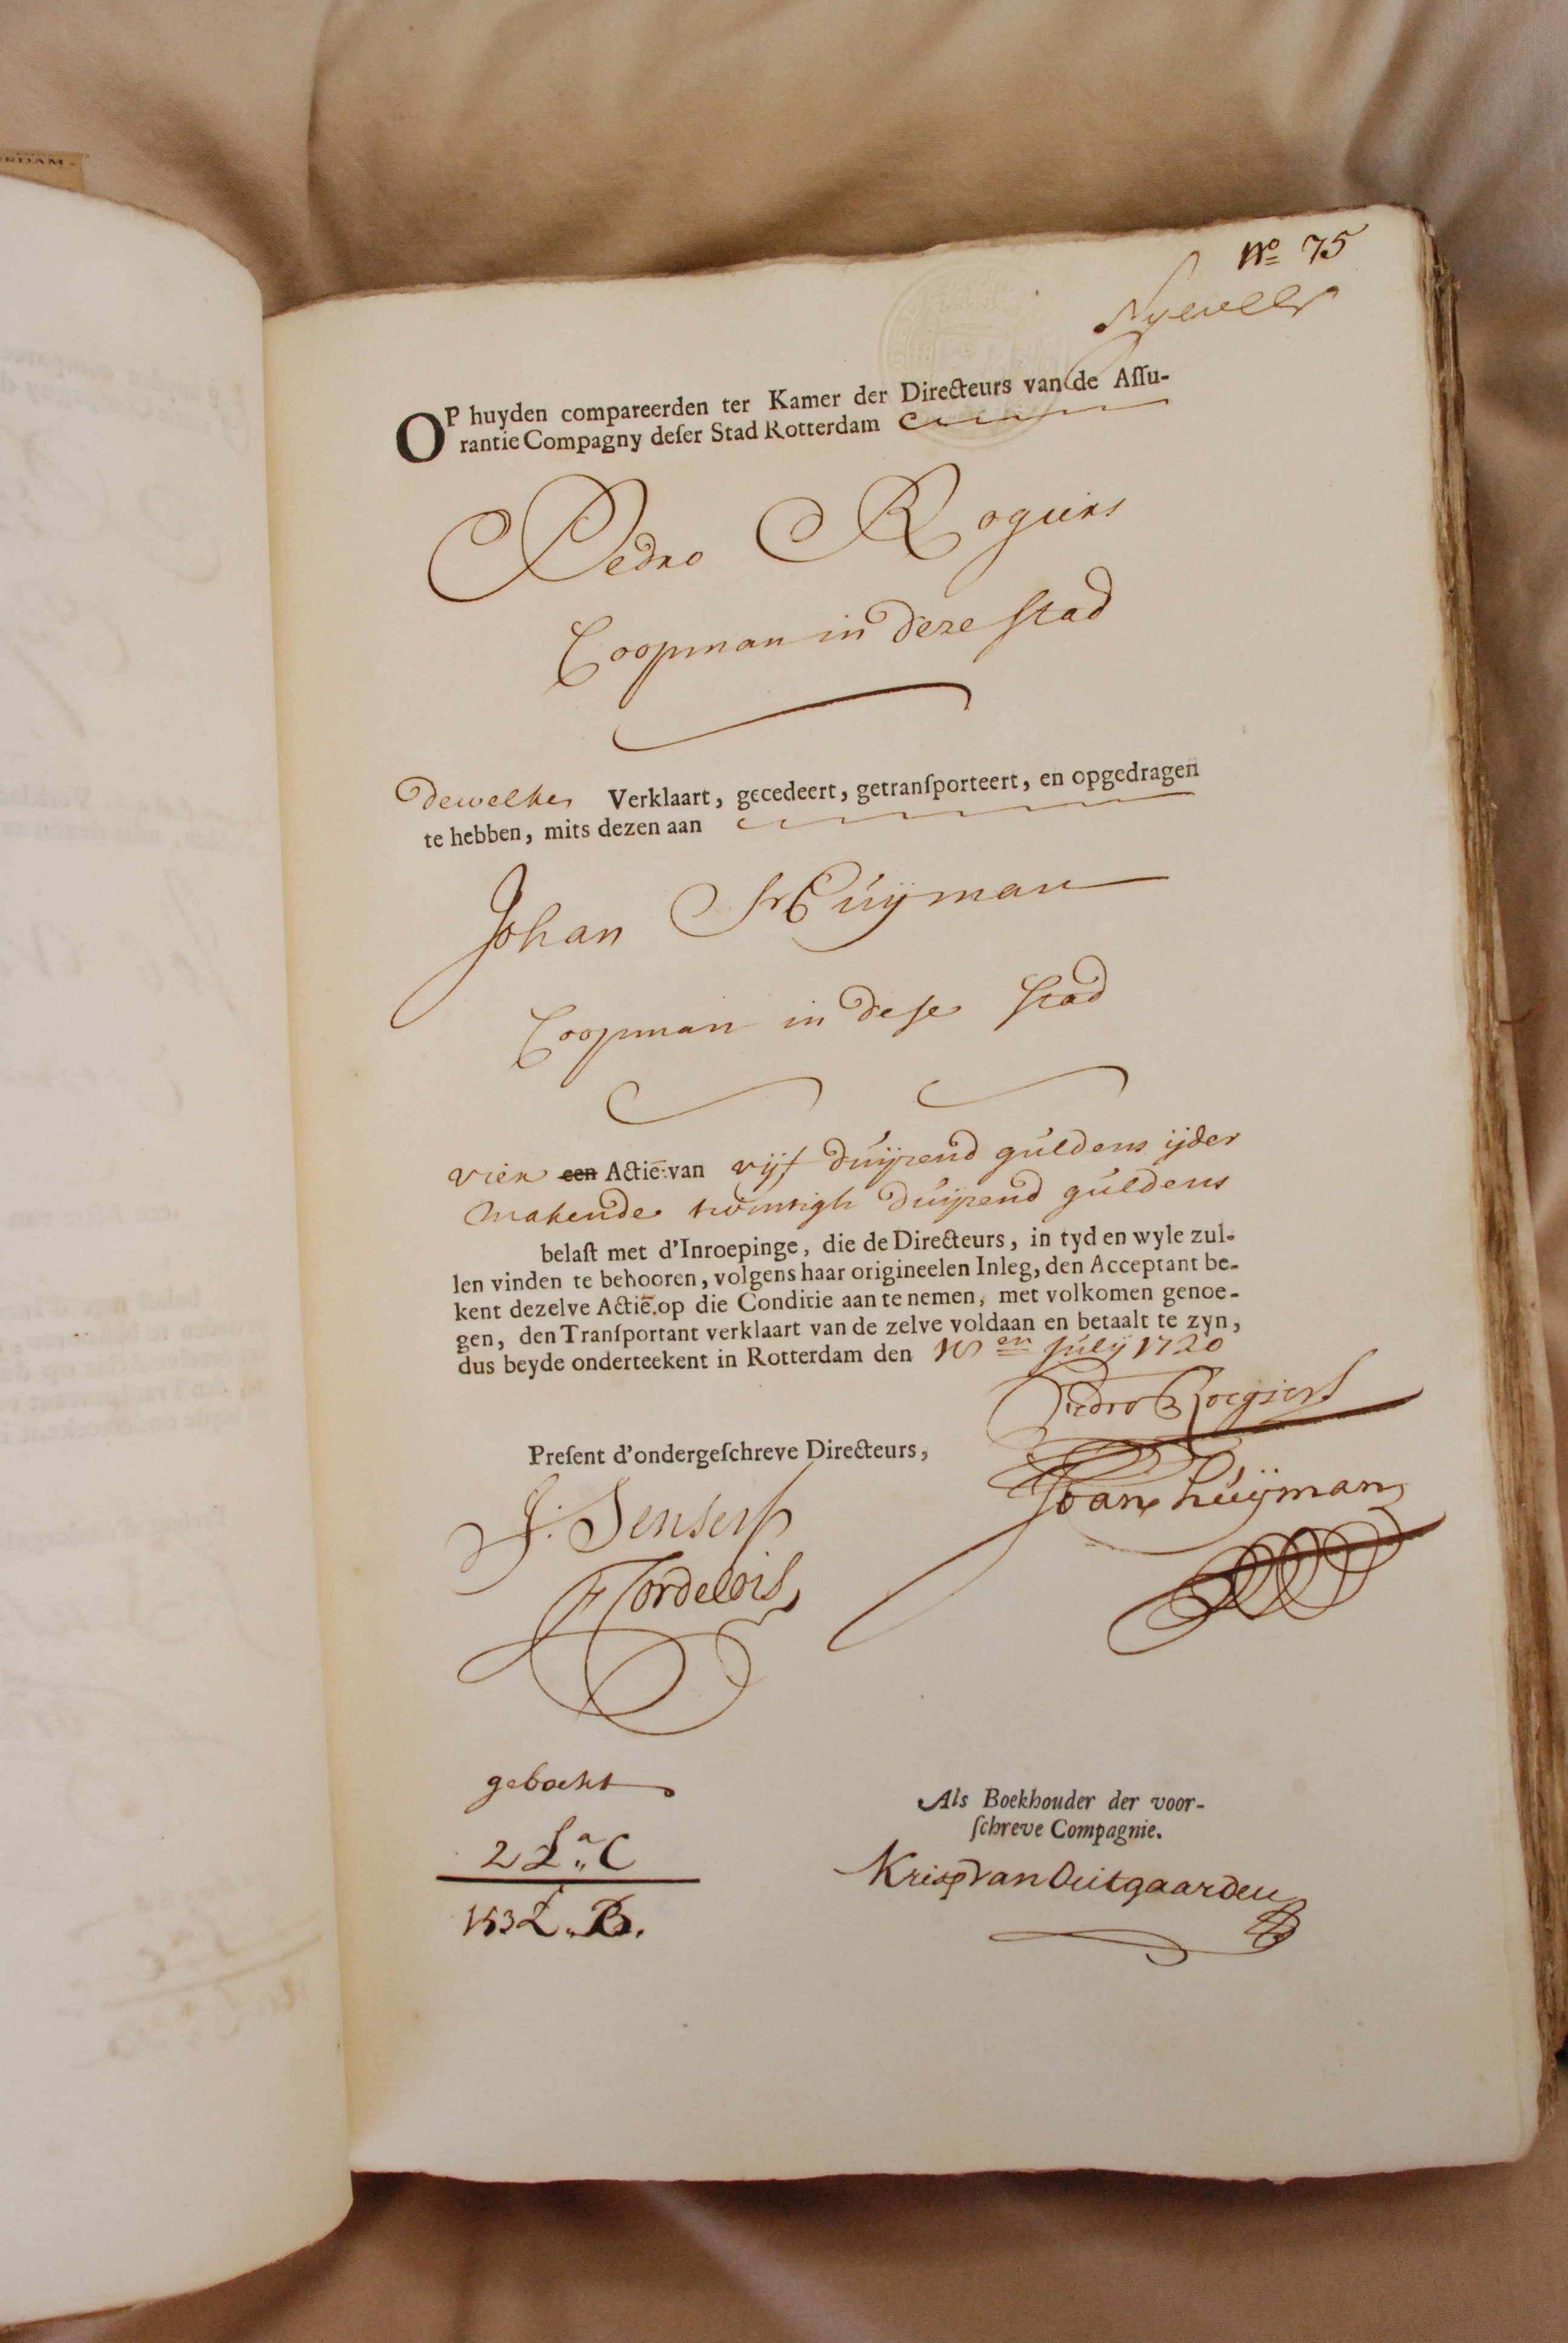 RDAM
No 75
Nyevelt
OP huyden compareerden ter Kamer der Directeurs van de Assu-
rantie Compagny deser Stad Rotterdam
Pedro Rogiers
Coopman in deze stad
dewelke Verklaart, gecedeert, getransporteert, en opgedragen
te hebben, mits dezen aan
Johan Huijman
Coopman in dese stad
vier een Actie van vijf duijzend guldens ijder
makende twintigh duijzend guldens
belast met d'Inroepinge, die de Directeurs, in tyd en wyle zul-
len vinden te behooren, volgens haar origineelen Inleg, den Acceptant be-
kent dezelve Actie op die Conditie aan te nemen, met volkomen genoe-
gen, den Transportant verklaart van de zelve voldaan en betaalt te zyn,
dus beyde onderteekent in Rotterdam den en Julij 1720
Pedro Roegiers
Present d'ondergeschreve Directeurs,
Joan Huijman
J: Senserff
Cordelois
geboekt
2 La C
153 L. B.
Als Boekhouder der voor-
schreve Compagnie.
Krisp van Outgaarden